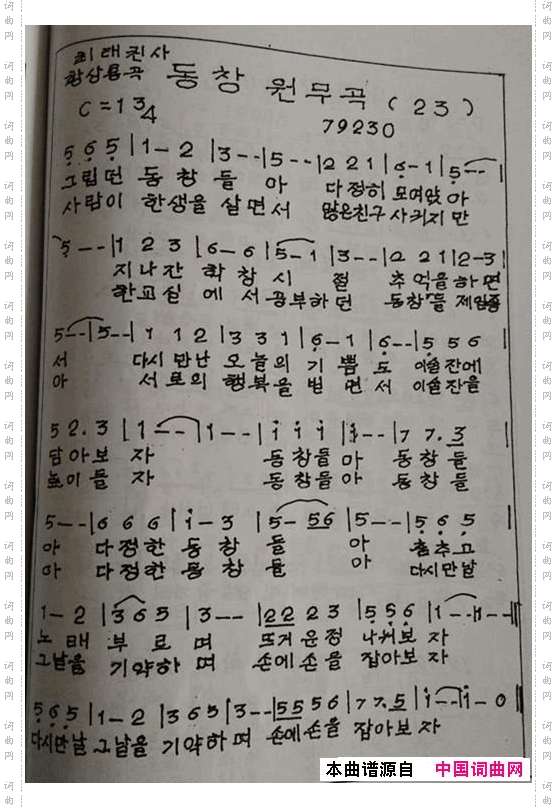 최태진사
황상용곡 동창 원무곡 (23)
C=1 3/4
79230
5 6 5 |1 - 2 |3 - - |5 - - |2 2 1 |6 - 1 |5 - - |
그립던 동창들아 다정히 모여앉아
사람이 한생을 살면서 많은친구 사귀지만
5 - - |1 2 3 |6 - 6 |5 - 1 |3 - - |2 2 1 |2 - 3 |
지나간 학창시절 추억을하면
한교실에서 공부하던 동창들 제일좋
5 - - |5 - - |1 1 2 |3 3 1 |6 - 1 |6 - - |5 5 6 |
서 다시만난 오늘의 기쁨도 이술잔에
아 서로의 행복을 빌면서 이술잔을
5 2. 3 |1 - - |1 - - |i i i |i - - |7 7. 3 |
담아보자 동창들아 동창들
높이들자 동창들아 동창들
5 - - |6 6 6 |i - 3 |5 - 56 |5 - - |5 6 5 |
아 다정한 동창들아 춤추고
아 다정한 동창들아 다시만날
1 - 2 |3 6 5 |3 - - |22 2 3 |5 5 6 |1 - - |1 - - ‖
노래부르며 뜨거운정 나눠보자
그날을 기약하며 손에손을 잡아보자
5 6 5 |1 - 2 |3 6 5 |3 - - |55 5 6 |7 7. 5 |i - - |i - 0 ‖
다시만날 그날을 기약하며 손에손을 잡아보자
本曲谱源自 中国词曲网
词曲网